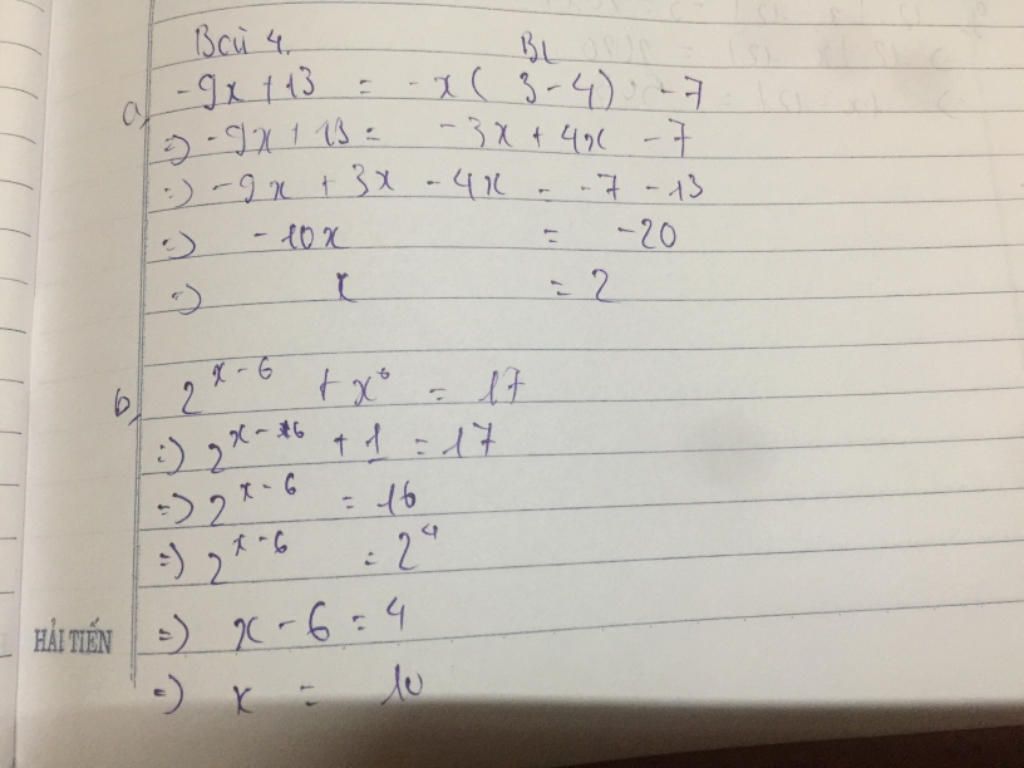 Bài 4. BL
a, -9x + 13 = -x( 3 - 4) - 7
=> -9x + 13 = -3x + 4x - 7
=> -9x + 3x - 4x = -7 - 13
=> -10x = -20
=> x = 2
b, 2^{x-6} + x^{0} = 17
=> 2^{x-6} + 1 = 17
=> 2^{x-6} = 16
=> 2^{x-6} = 2^{4}
=> x - 6 = 4
HẢI TIẾN
=> x = 10